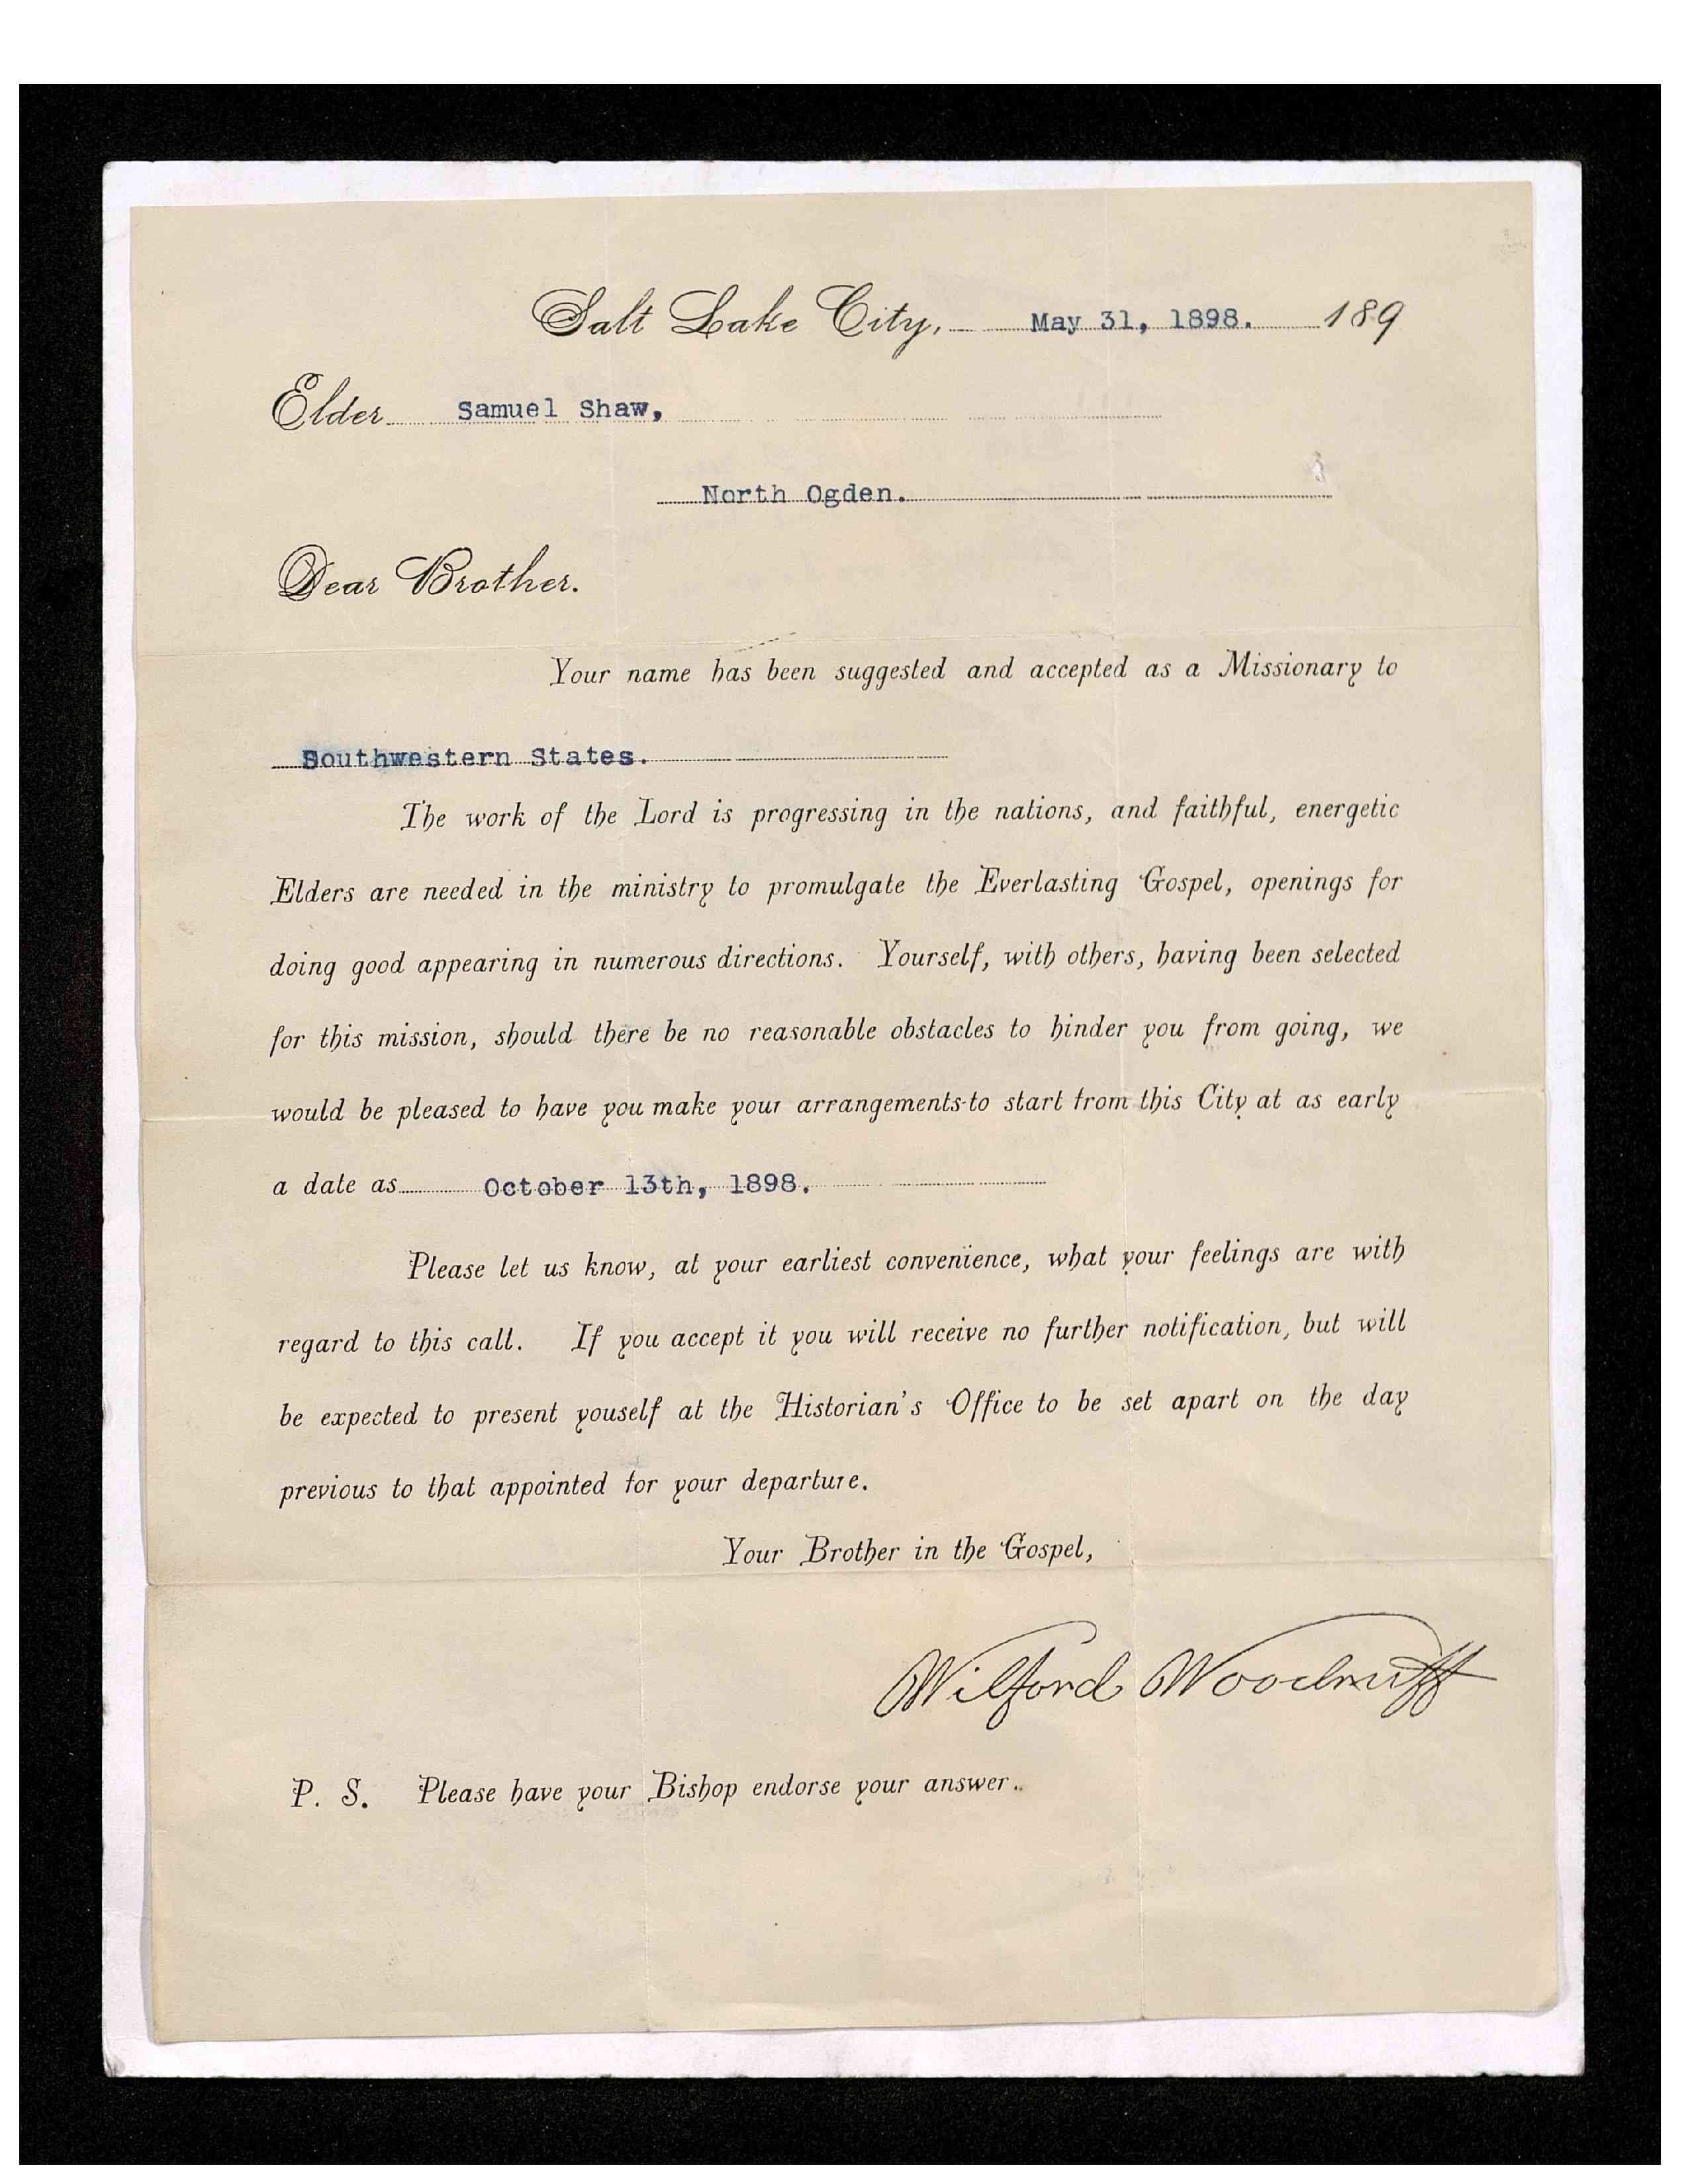 Salt Lake City, May 31, 1898. 189
Elder Samuel Shaw,
North Ogden.
Dear Brother.
Your name has been suggested and accepted as a Missionary to
Southwestern States.
The work of the Lord is progressing in the nations, and faithful, energetic
Elders are needed in the ministry to promulgate the Everlasting Gospel, openings for
doing good appearing in numerous directions. Yourself, with others, having been selected
for this mission, should there be no reasonable obstacles to hinder you from going, we
would be pleased to have you make your arrangements to start from this City at as early
a date as October 13th, 1898.
Please let us know, at your earliest convenience, what your feelings are with
regard to this call. If you accept it you will receive no further notification, but will
be expected to present youself at the Historian's Office to be set apart on the day
previous to that appointed for your departure.
Your Brother in the Gospel,
Wilford Woodruff
P. S. Please have your Bishop endorse your answer.